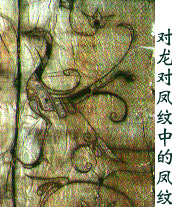 对龙对凤纹中的凤纹